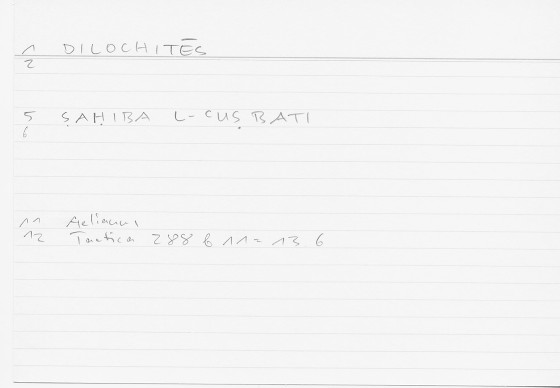 1 DILOCHITĒS
2
5 ṢAḤIBA L-ᶜUṢBATI
6
11 Aelianus
12 Tactica 288 b 11 = 13 6